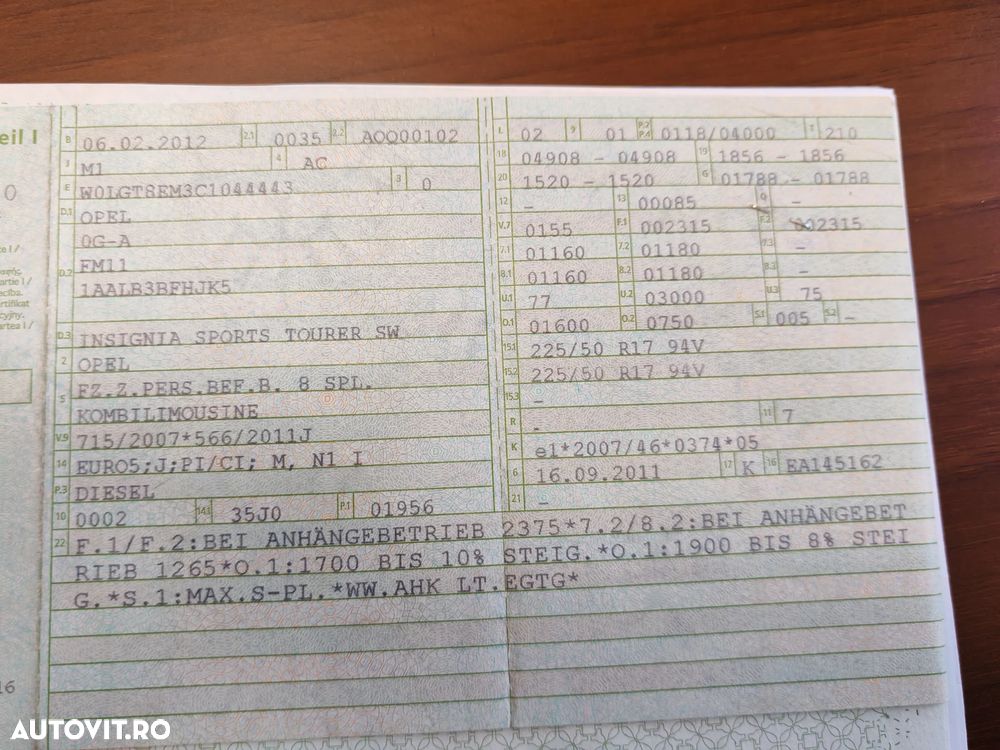 eil I
B 06.02.2012 2.1 0035 2.2 AOQ00102
J M1 4 AC
E W0LGT8EM3C1044443 3 0
D.1 OPEL
0G-A
D.2 FM11
1AALB3BFHJK5
D.3 INSIGNIA SPORTS TOURER SW
2 OPEL
5 FZ.Z.PERS.BEF.B. 8 SPL.
KOMBILIMOUSINE
V.9 715/2007*566/2011J
14 EURO5;J;PI/CI; M, N1 I
P.3 DIESEL
10 0002 14.1 35J0 P.1 01956
L 02 9 01 P.2 P.4 0118/04000 T 210
18 04908 - 04908 19 1856 - 1856
20 1520 - 1520 G 01788 - 01788
12 - 13 00085 Q -
V.7 0155 F.1 002315 F.2 002315
7.1 01160 7.2 01180 7.3 -
8.1 01160 8.2 01180 8.3 -
U.1 77 U.2 03000 U.3 75
O.1 01600 O.2 0750 S.1 005 S.2 -
15.1 225/50 R17 94V
15.2 225/50 R17 94V
15.3 -
R - 11 7
K e1*2007/46*0374*05
6 16.09.2011 17 K 16 EA145162
21 -
22 F.1/F.2:BEI ANHÄNGEBETRIEB 2375*7.2/8.2:BEI ANHÄNGEBET
RIEB 1265*O.1:1700 BIS 10% STEIG.*O.1:1900 BIS 8% STEI
G.*S.1:MAX.S-PL.*WW.AHK LT.EGTG*
AUTOVIT.RO